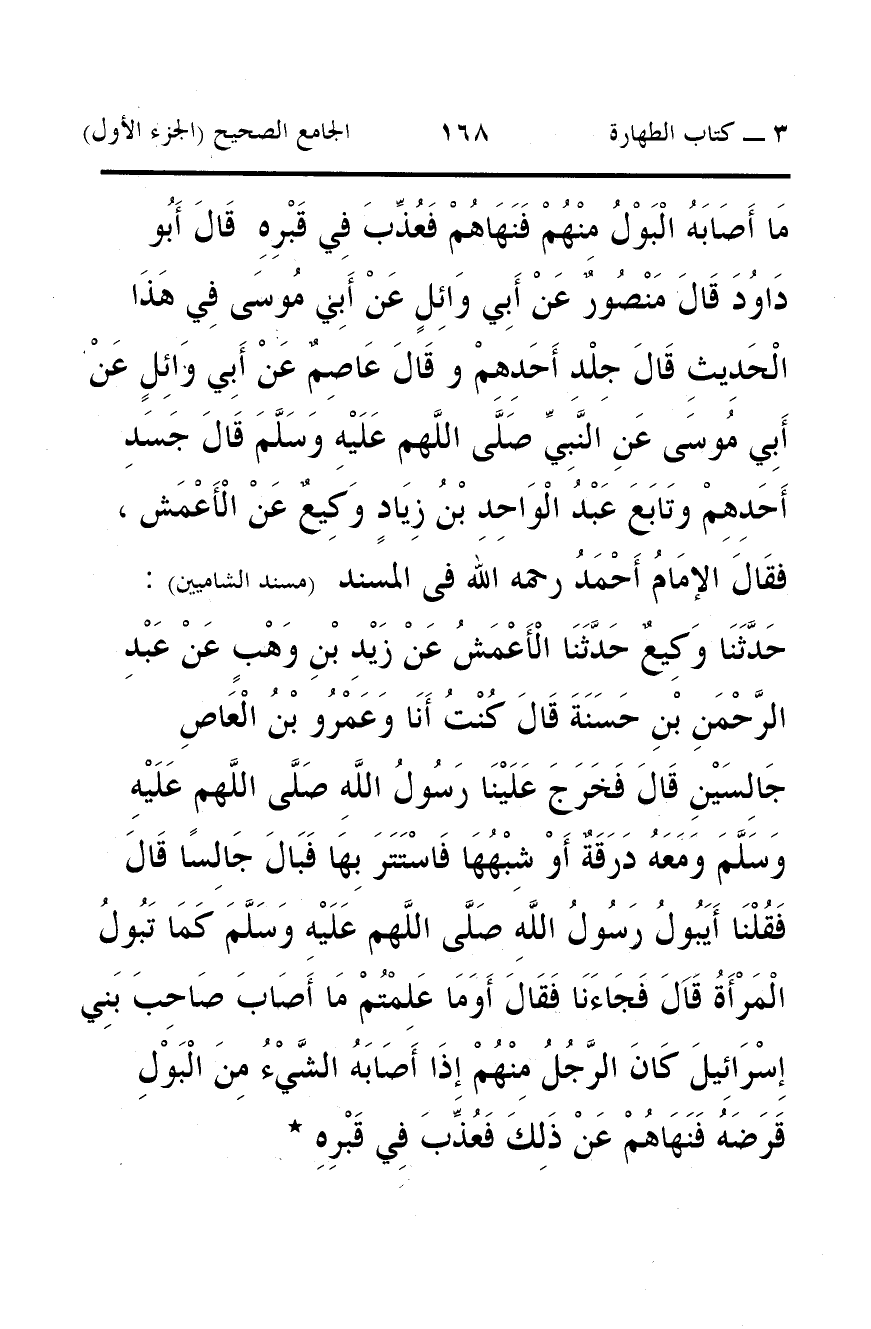 ٣ ــ كتاب الطهارة ١٦٨ الجامع الصحيح (الجزء الأول)
مَا أَصَابَهُ الْبَوْلُ مِنْهُمْ فَنَهَاهُمْ فَعُذِّبَ فِي قَبْرِهِ قَالَ أَبُو
دَاوُدَ قَالَ مَنْصُورٌ عَنْ أَبِي وَائِلٍ عَنْ أَبِي مُوسَى فِي هَذَا
الْحَدِيثِ قَالَ جِلْدِ أَحَدِهِمْ و قَالَ عَاصِمٌ عَنْ أَبِي وَائِلٍ عَنْ
أَبِي مُوسَى عَنِ النَّبِيِّ صَلَّى اللَّهم عَلَيْهِ وَسَلَّمَ قَالَ جَسَدِ
أَحَدِهِمْ وتَابَعَ عَبْدُ الْوَاحِدِ بْنُ زِيَادٍ وَكِيعٌ عَنْ الْأَعْمَشِ ،
فقَالَ الإمَامُ أَحْمَدُ رحمه الله فى المسند (مسند الشاميين) :
حَدَّثَنَا وَكِيعٌ حَدَّثَنَا الْأَعْمَشُ عَنْ زَيْدِ بْنِ وَهْبٍ عَنْ عَبْدِ
الرَّحْمَنِ بْنِ حَسَنَةَ قَالَ كُنْتُ أَنَا وَعَمْرُو بْنُ الْعَاصِ
جَالِسَيْنِ قَالَ فَخَرَجَ عَلَيْنَا رَسُولُ اللَّهِ صَلَّى اللَّهم عَلَيْهِ
وَسَلَّمَ وَمَعَهُ دَرَقَةٌ أَوْ شِبْهُهَا فَاسْتَتَرَ بِهَا فَبَالَ جَالِسًا قَالَ
فَقُلْنَا أَيَبُولُ رَسُولُ اللَّهِ صَلَّى اللَّهم عَلَيْهِ وَسَلَّمَ كَمَا تَبُولُ
الْمَرْأَةُ قَالَ فَجَاءَنَا فَقَالَ أَوَمَا عَلِمْتُمْ مَا أَصَابَ صَاحِبَ بَنِي
إِسْرَائِيلَ كَانَ الرَّجُلُ مِنْهُمْ إِذَا أَصَابَهُ الشَّيْءُ مِنَ الْبَوْلِ
قَرَضَهُ فَنَهَاهُمْ عَنْ ذَلِكَ فَعُذِّبَ فِي قَبْرِهِ *